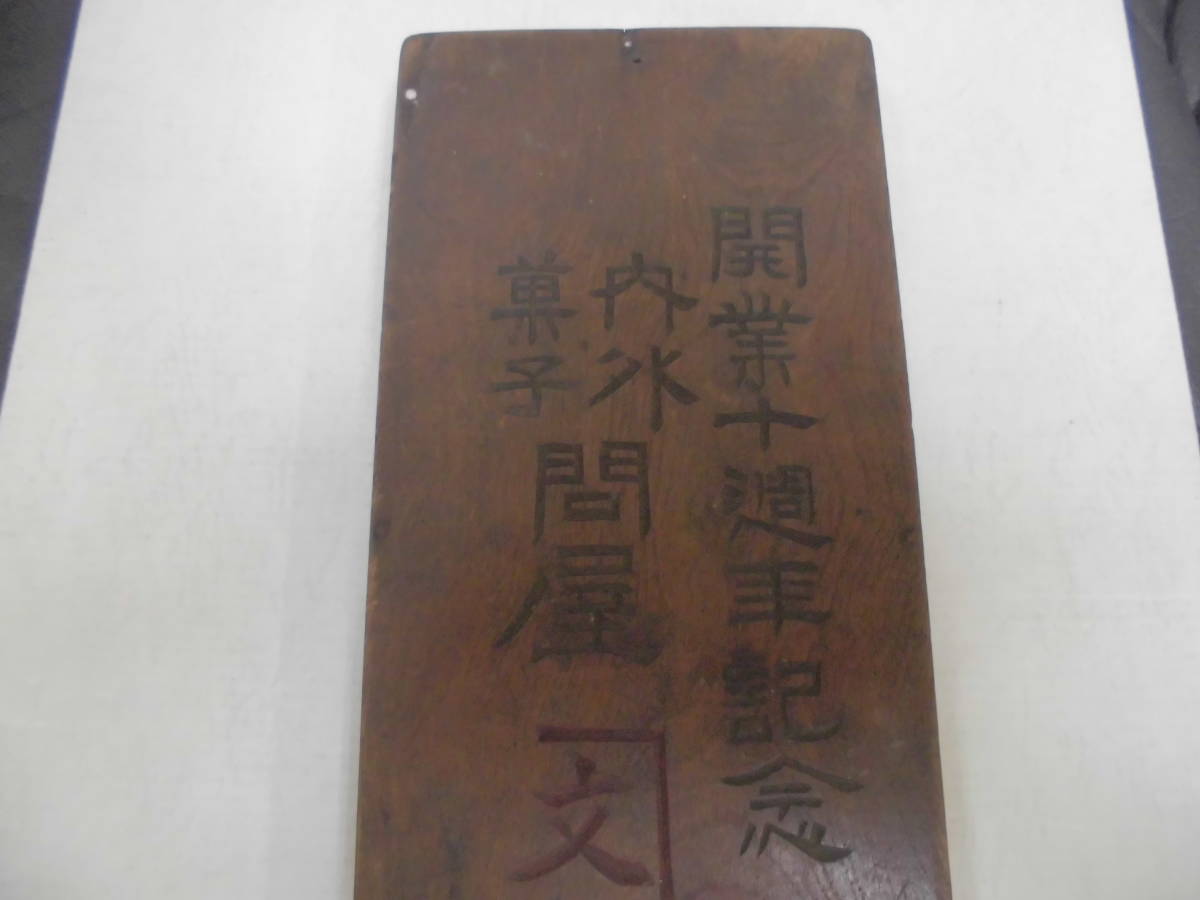 開業十週年記念
内外
菓子
問屋
文